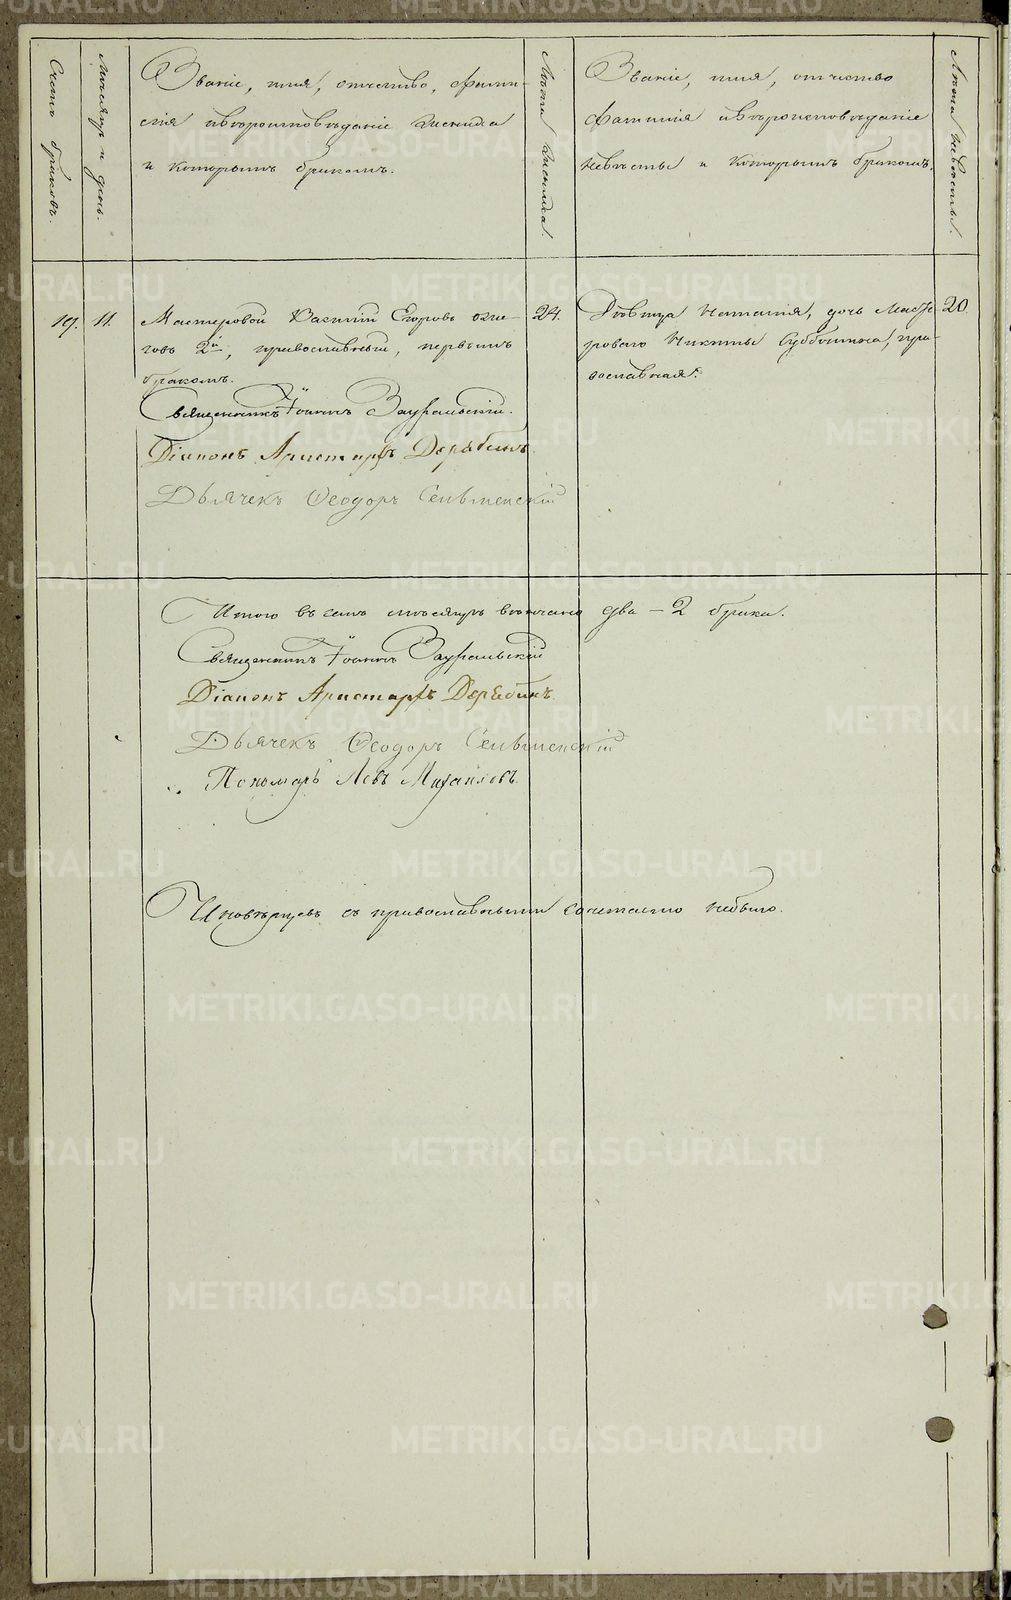 Счетъ браковъ.
Мѣсяцъ и день.
Званіе, имя, отчество, фами-
лія и вѣроисповѣданіе жениха
и которымъ бракомъ.
Лѣта жениха.
Званіе, имя, отчество
фамилія и вѣроисповѣданіе
невѣсты и которымъ бракомъ.
Лѣта невѣсты.
19. 11. Мастеровой Василій Егоровъ
2й, православный, первымъ
бракомъ.
24.
Дѣвица Наталія, дочь Масте-
роваго Никиты Субботина, пра-
вославная.
20.
Священникъ Іоаннъ Зауральскій.
Діаконъ Аристархъ Дерябинъ.
Дьячекъ Ѳеодоръ Сельменскій
Итого въ семъ мѣсяцѣ вѣнчано два - 2 брака.
Священникъ Іоаннъ Зауральскій
Діаконъ Аристархъ Дерябинъ.
Дьячекъ Ѳеодоръ Сельменскій
Пономарь Левъ Михайловъ
Иновѣрцевъ съ православными сочетаемо небыло.
METRIKI.GASO-URAL.RU